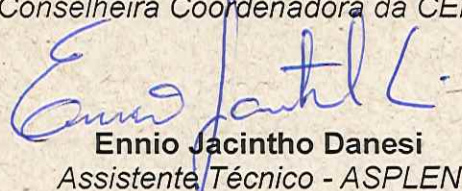 Conselheira Coordenadora da CE
Ennio Jacintho Danesi
Assistente Técnico - ASPLEN